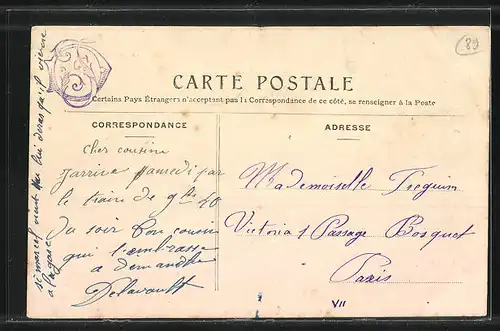 CARTE POSTALE
Certains Pays Étrangers n'acceptant pas la Correspondance de ce côté, se renseigner à la Poste
CORRESPONDANCE
ADRESSE
89
cher cousine
J'arrive samedi par
le train de 9h 40
du soir ton cousin
qui t'embrasse
a demandhe
Delavault
si marcel vient tu lui diras qu'il vienne
a la gare
Mademoiselle Treguin
Victoria 1 Passage Bosquet
Paris
VII